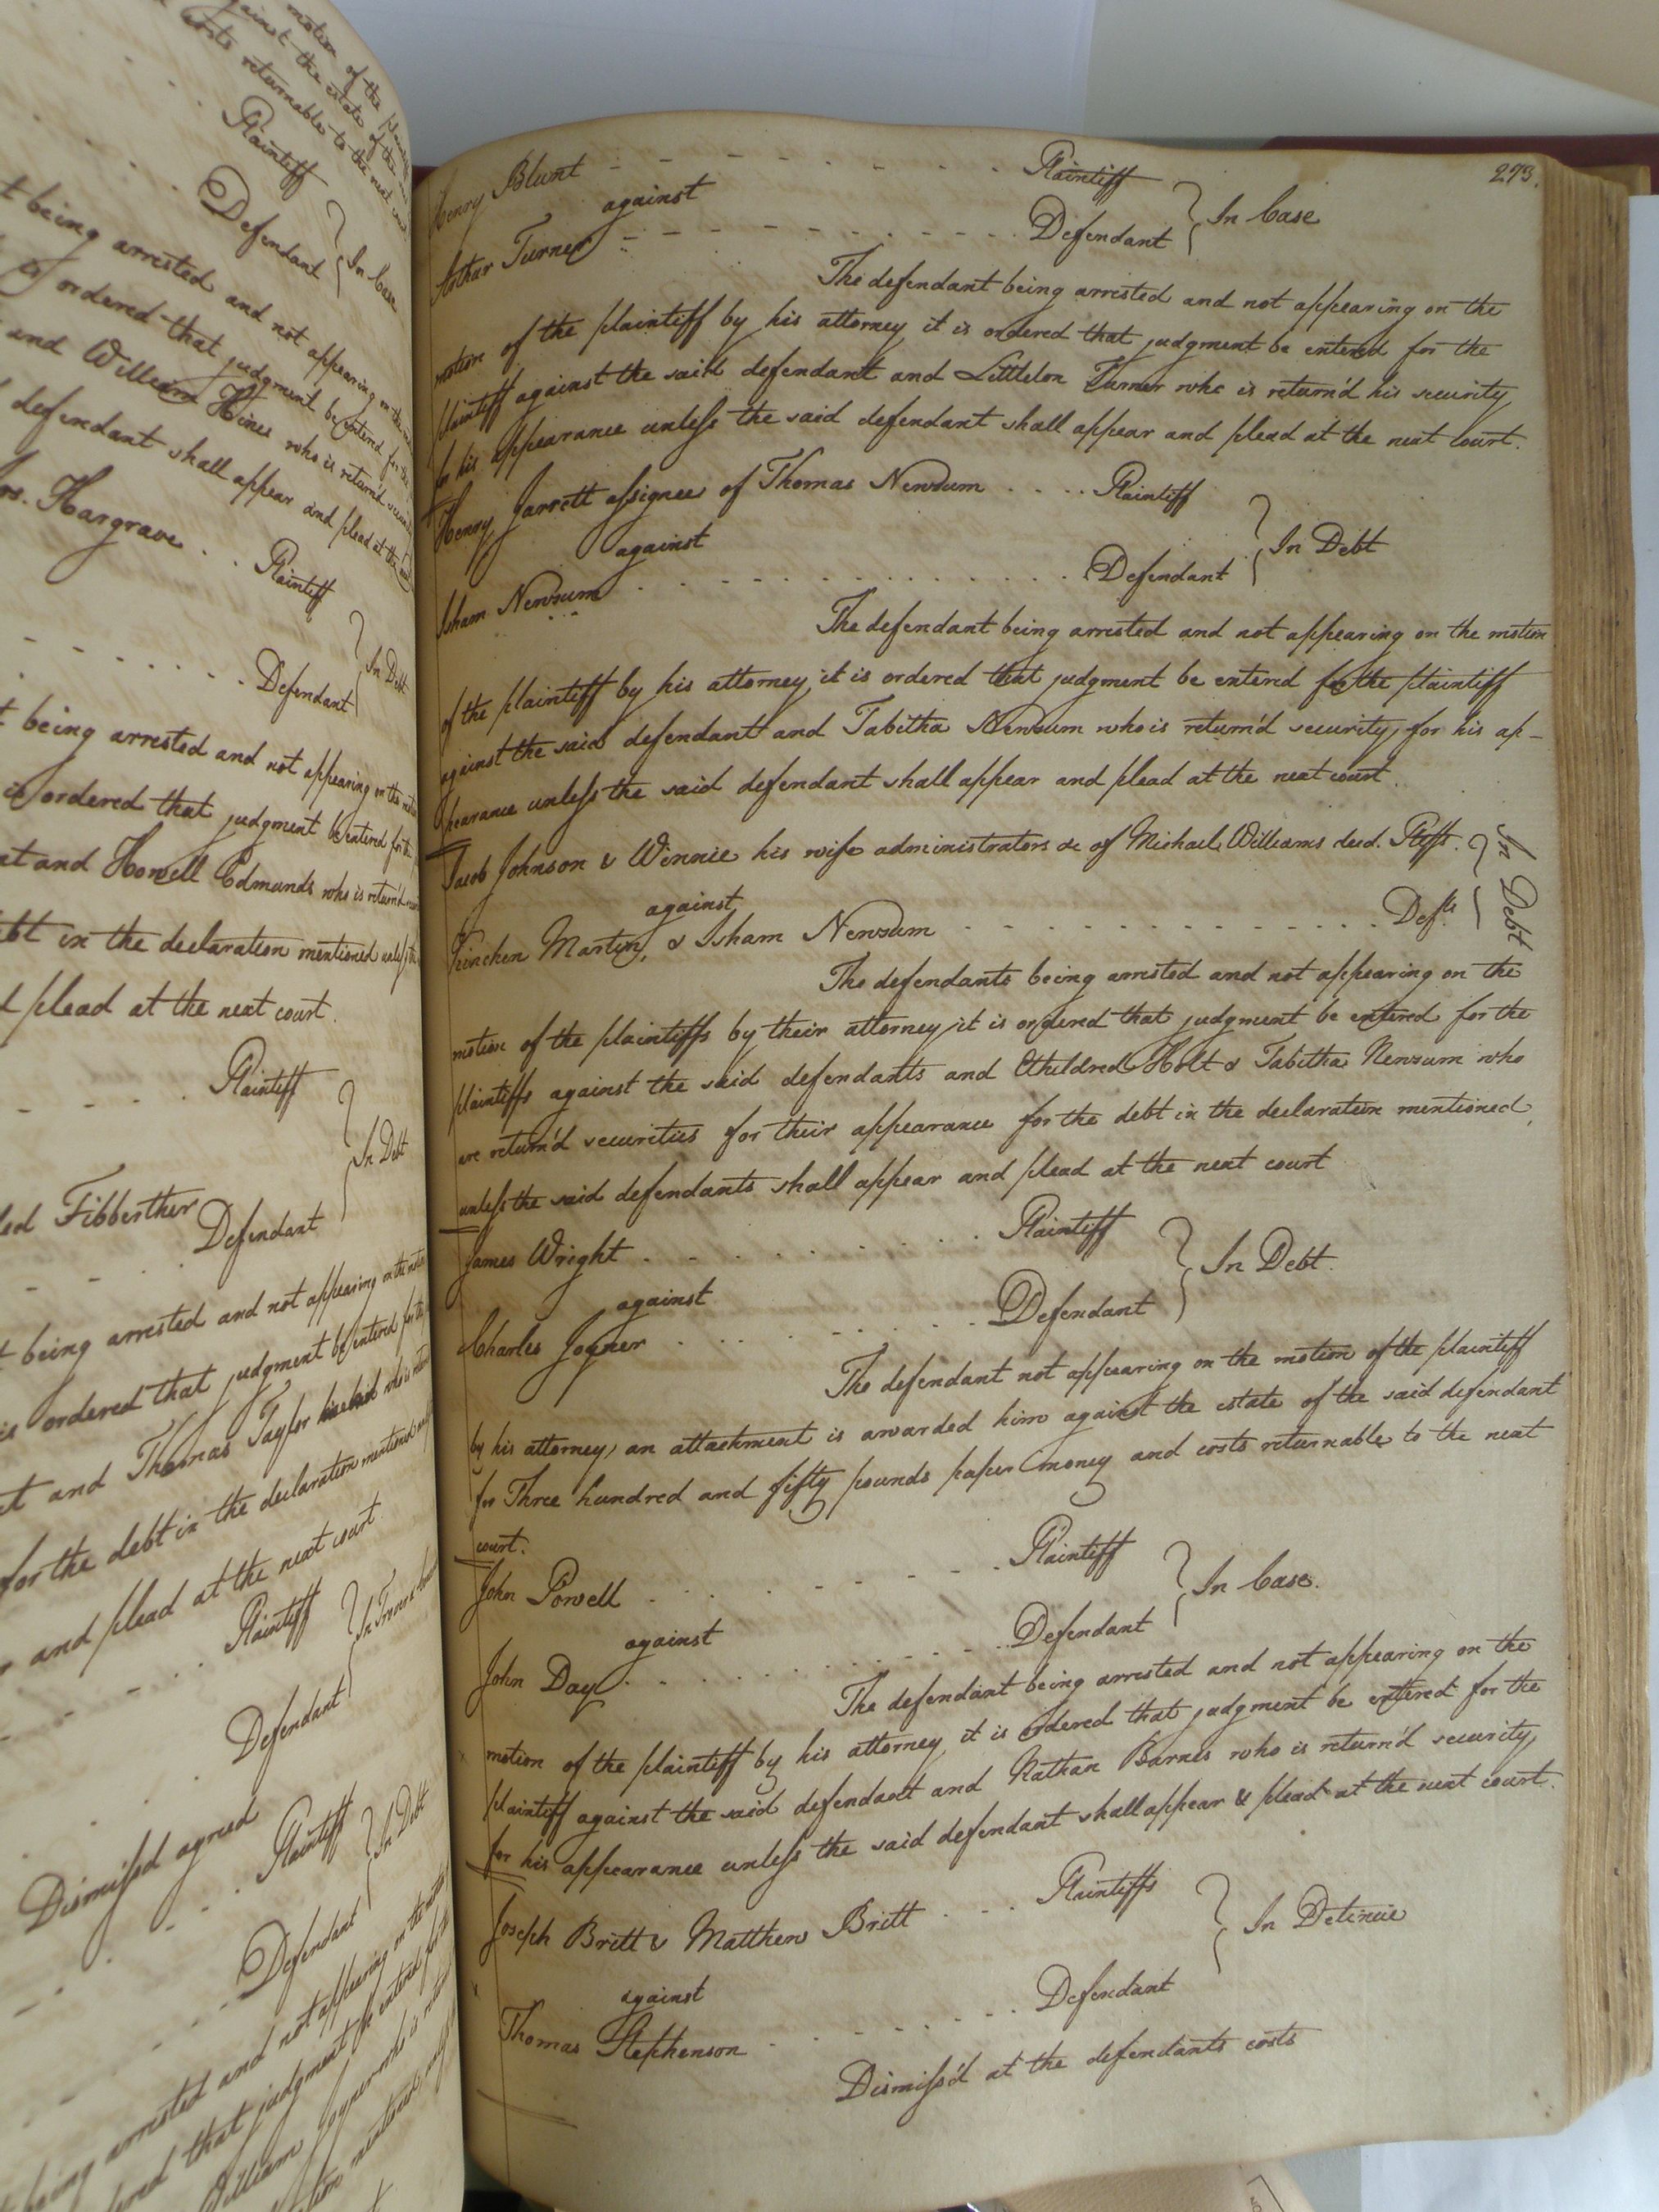 motion of the plaintiff
against the estate of the said
costs returnable to the next court
Plaintiff
Defendant
In Case
t being arrested and not appearing on the
is ordered that judgment be entered for the
and William Hines who is return'd security
defendant shall appear and plead at the next
Hargrave . . Plaintiff
In Debt
Defendant
t being arrested and not appearing on the motion
is ordered that judgment be entered for the
nt and Howell Edmunds who is return'd
ebt in the declaration mentioned unless the
d plead at the next court.
Plaintiff
In Debt
Fibberther
Defendant
t being arrested and not appearing on the motion
is ordered that judgment be entered for the
nt and Thomas Taylor who is return
for the debt in the declaration mentioned
r and plead at the next court
Plaintiff
Defendant
Dismiss'd agreed
Plaintiff
In Debt
Defendant
being arrested and not appearing on the motion
ordered that judgment be entered for the
William Joyner who is return
273.
Henry Blunt - - - - - - - - . . . Plaintiff
against
In Case
Arthur Turner - - - - - - - - . . . . Defendant
The defendant being arrested and not appearing on the
motion of the plaintiff by his attorney it is ordered that judgment be entered for the
plaintiff against the said defendant and Littleton Turner who is return'd his security
for his appearance unless the said defendant shall appear and plead at the next Court.
Henry Jarrett assignee of Thomas Newsum . . . . Plaintiff
against
In Debt
Isham Newsum . . . . . . . . . . . . . Defendant
The defendant being arrested and not appearing on the motion
of the plaintiff by his attorney it is ordered that judgment be entered for the plaintiff
against the said defendant and Tabitha Newsum who is return'd security for his ap-
pearance unless the said defendant shall appear and plead at the next court
Jacob Johnson & Winnie his wife administrators &c of Michael Williams decd. Pltffs.
against
In Debt
Kinchen Martin, & Isham Newsum . . . . . . . . . . . . Defts.
The defendants being arrested and not appearing on the
motion of the plaintiffs by their attorney it is ordered that judgment be entered for the
plaintiffs against the said defendants and Etheldred Holt & Tabitha Newsum who
are return'd securities for their appearance for the debt in the declaration mentioned,
unless the said defendants shall appear and plead at the next court
James Wright . . . . . . . . . . Plaintiff
against
In Debt.
Charles Joyner . . . . . . . . . Defendant
The defendant not appearing on the motion of the plaintiff
by his attorney, an attachment is awarded him against the estate of the said defendant
for Three hundred and fifty pounds paper money and costs returnable to the next
court.
John Powell . . . . . . . . Plaintiff
against
In Case.
John Day . . . . . . . . . . Defendant
The defendant being arrested and not appearing on the
motion of the plaintiff by his attorney it is ordered that judgment be entered for the
plaintiff against the said defendant and Nathan Barnes who is return'd security
for his appearance unless the said defendant shall appear & plead at the next court.
Joseph Britt & Matthew Britt . . . Plaintiffs
against
In Detinue
Thomas Stephenson . . . . . . . Defendant
Dismiss'd at the defendants costs